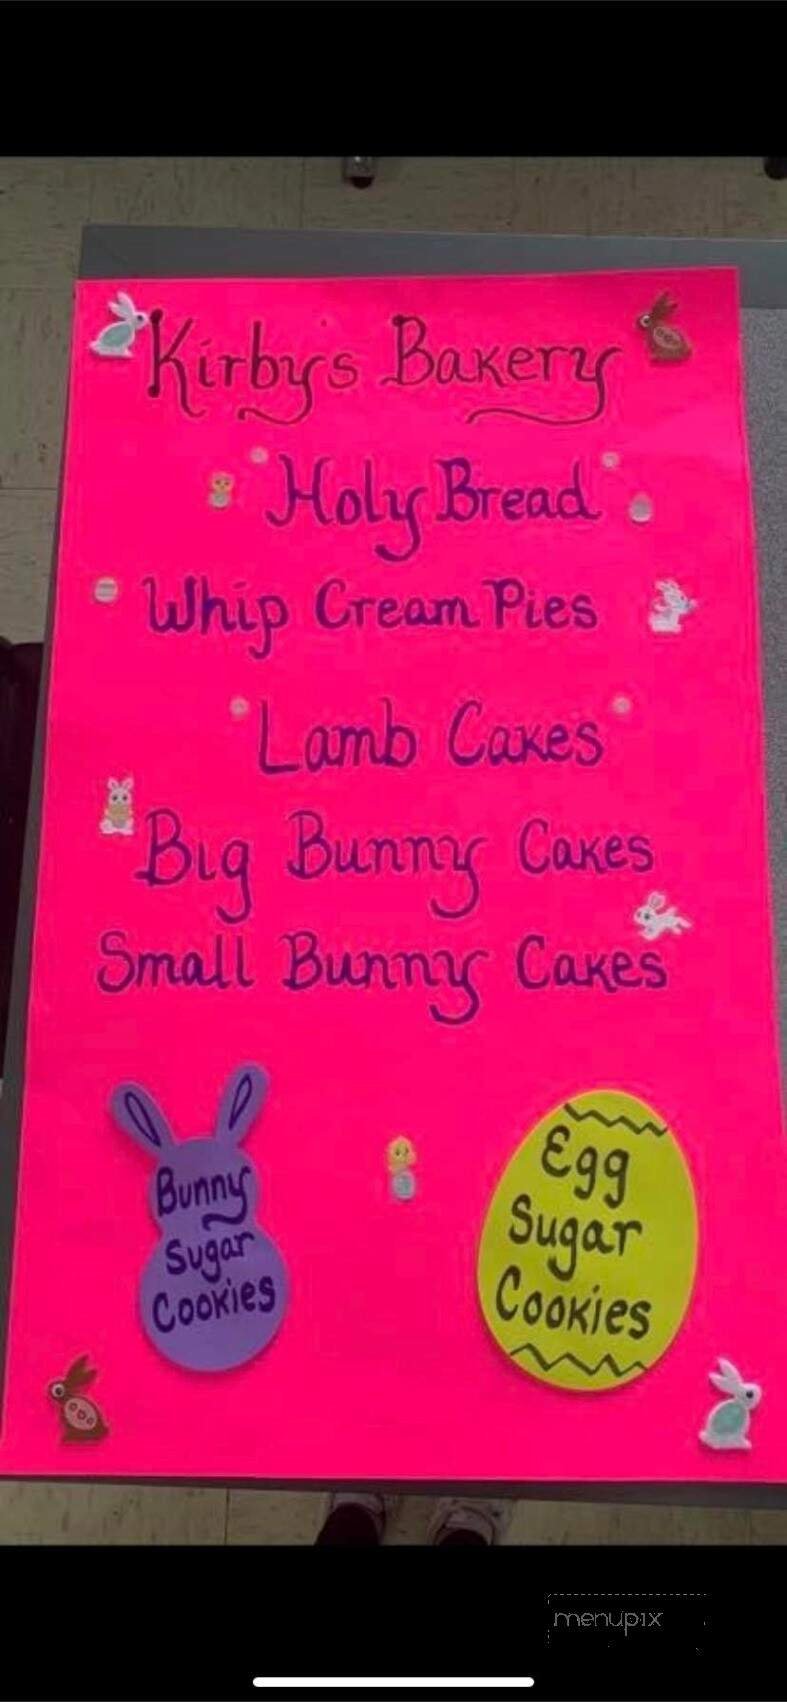 Kirby's Bakery
Holy Bread
Whip Cream Pies
Lamb Cakes
Big Bunny Cakes
Small Bunny Cakes
Bunny
Sugar
Cookies
Egg
Sugar
Cookies
menupix